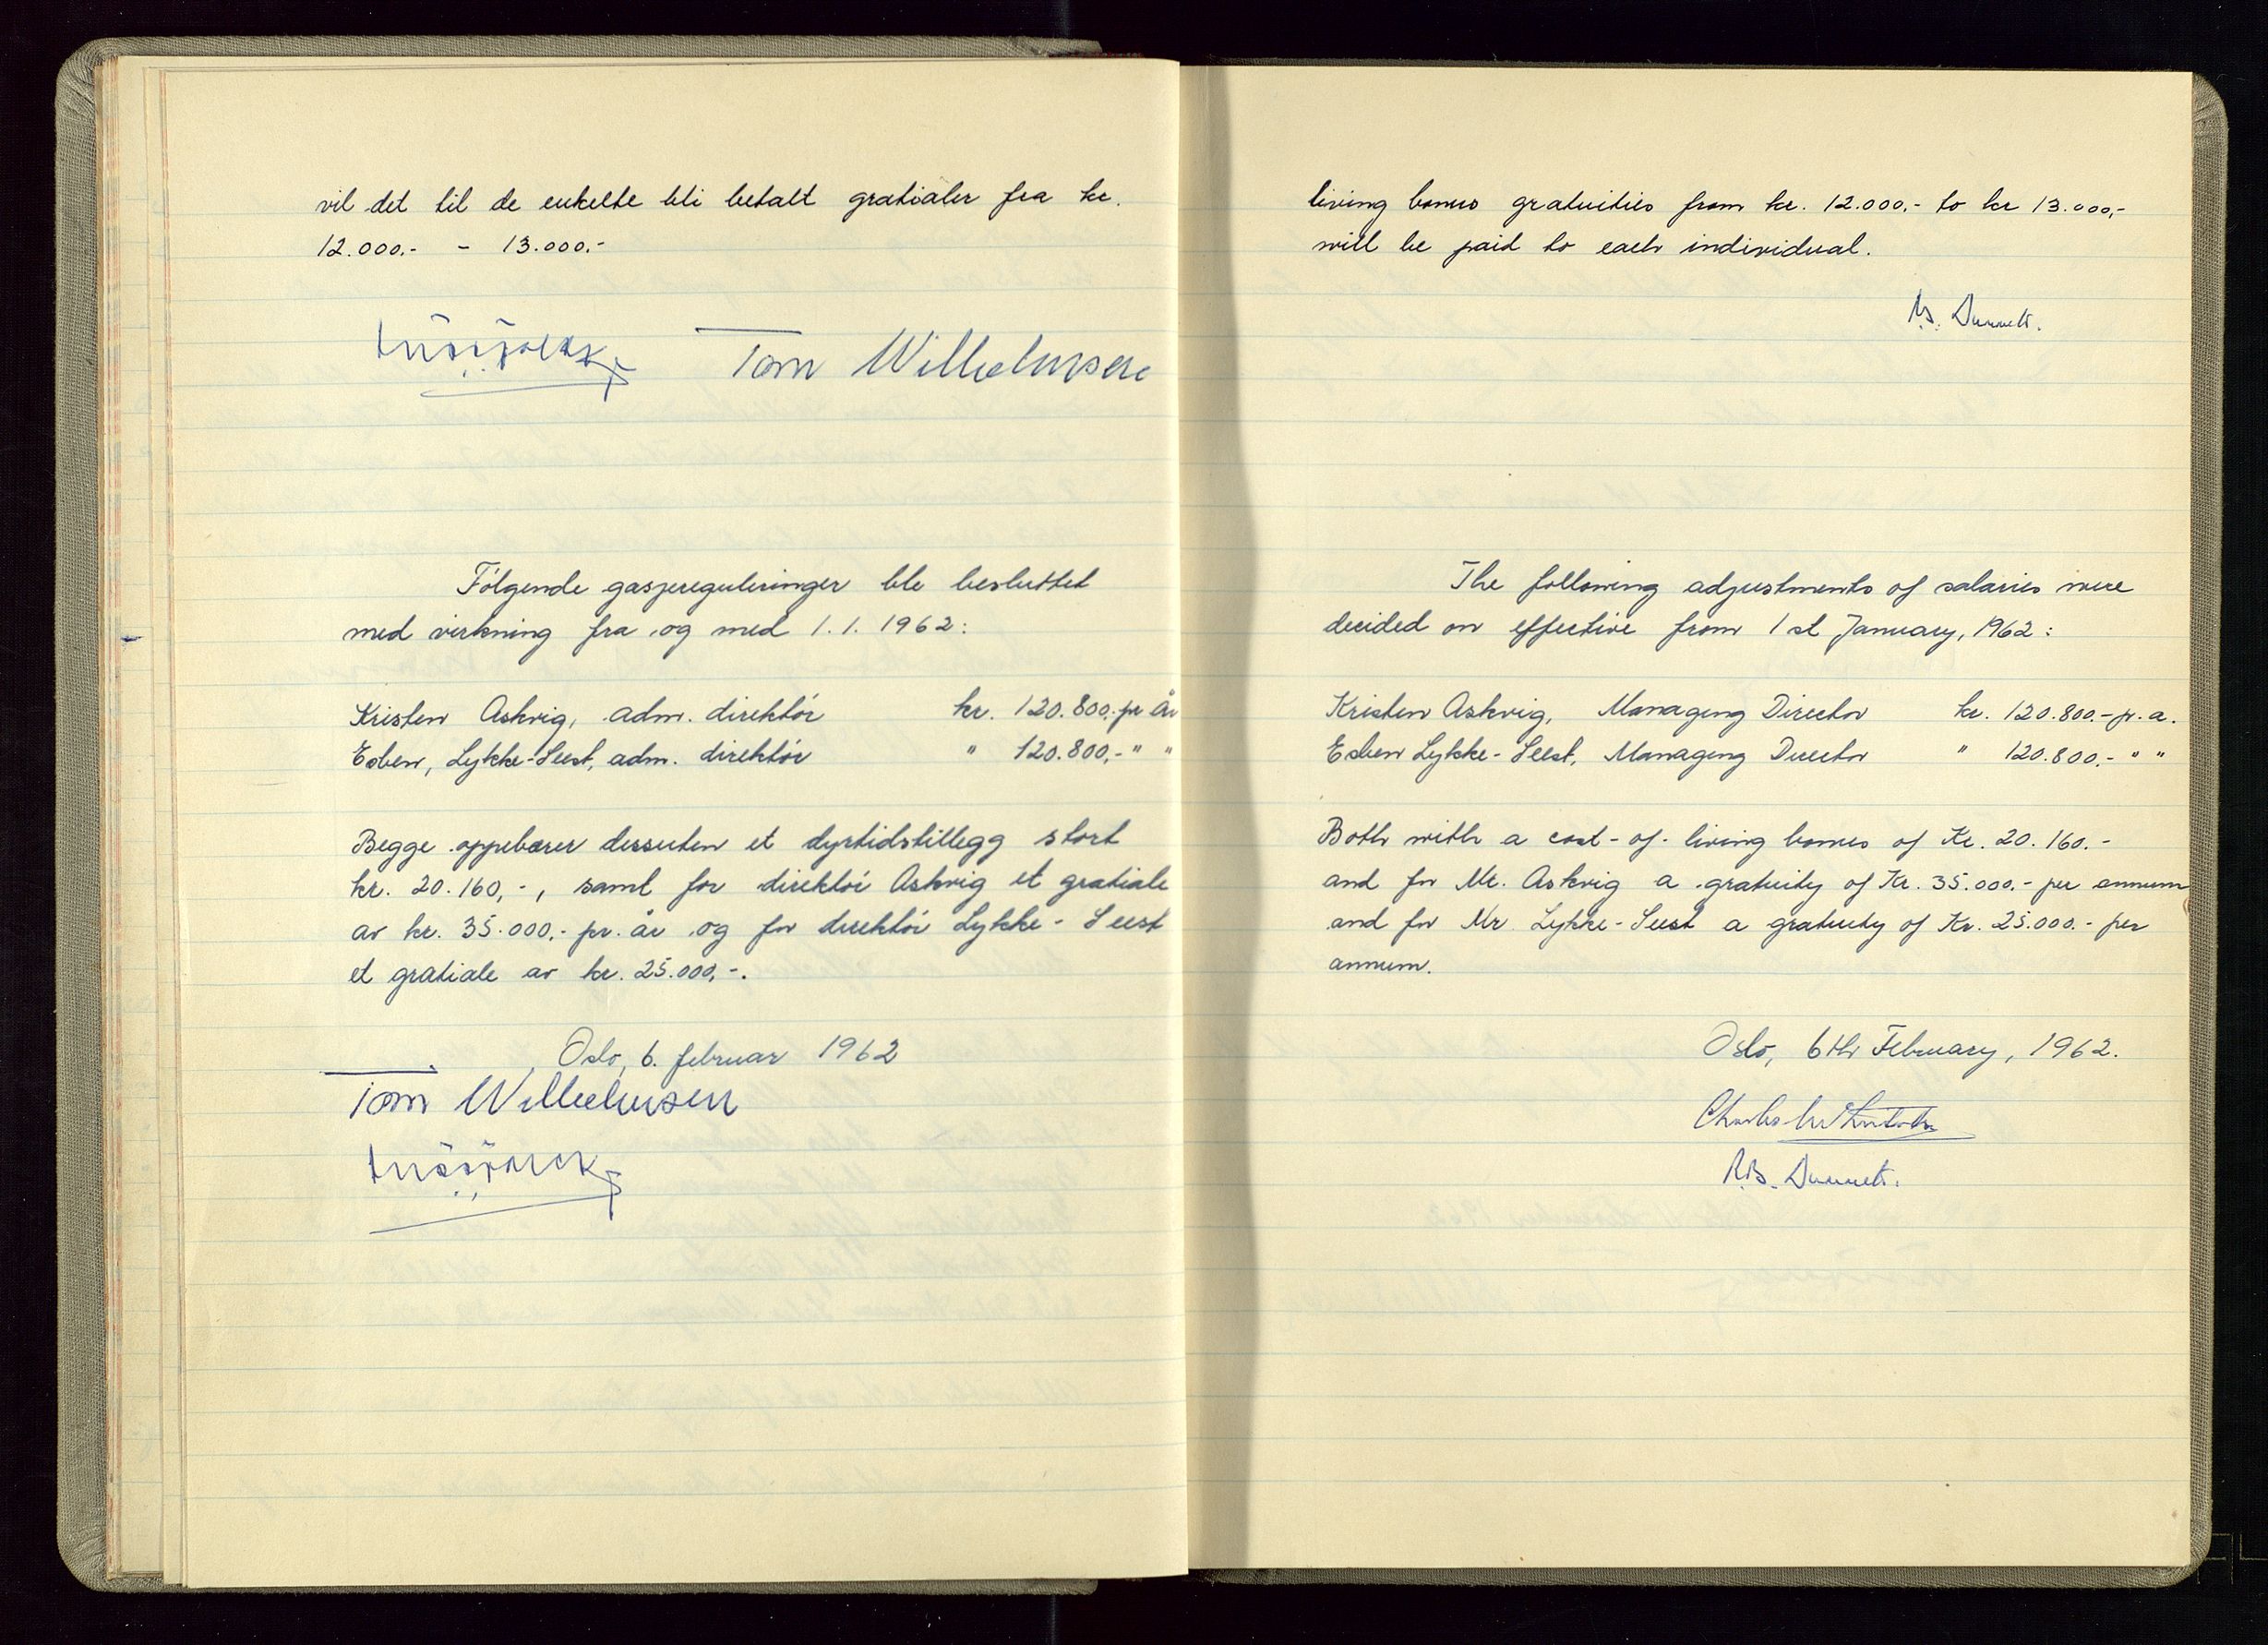 vil det til de enkelte bli betalt gratialer fra kr.
12.000.- - 13.000.-
Tom Wilhelmsen
Følgende gasjereguleringer ble besluttet
med virkning fra og med 1.1. 1962:
Kristen Askvig, adm. direktør kr. 120.800,- pr år
Esben, Lykke-Seest, adm. direktør " 120.800,- " "
Begge oppebærer dessuten et dyrtidstillegg stort
kr. 20.160,-, samt for direktør Askvig et gratiale
av kr. 35.000,- pr. år og for direktør Lykke-Seest
et gratiale av kr. 25.000,-.
Oslo, 6. februar 1962
Tom Wilhelmsen
living bonus gratuities from kr. 12.000,- to kr 13.000,-
will be paid to each individual.
The following adjustments of salaries were
decided on effective from 1st January, 1962:
Kristen Askvig, Managing Director kr. 120.800.- p.a.
Esben Lykke-Seest, Managing Director " 120.800.- " "
Both with a cost-of-living bonus of Kr. 20.160.-
and for Mr. Askvig a gratuity of Kr. 35.000.- per annum
and for Mr. Lykke-Seest a gratuity of Kr. 25.000.- per
annum.
Oslo, 6th February, 1962.